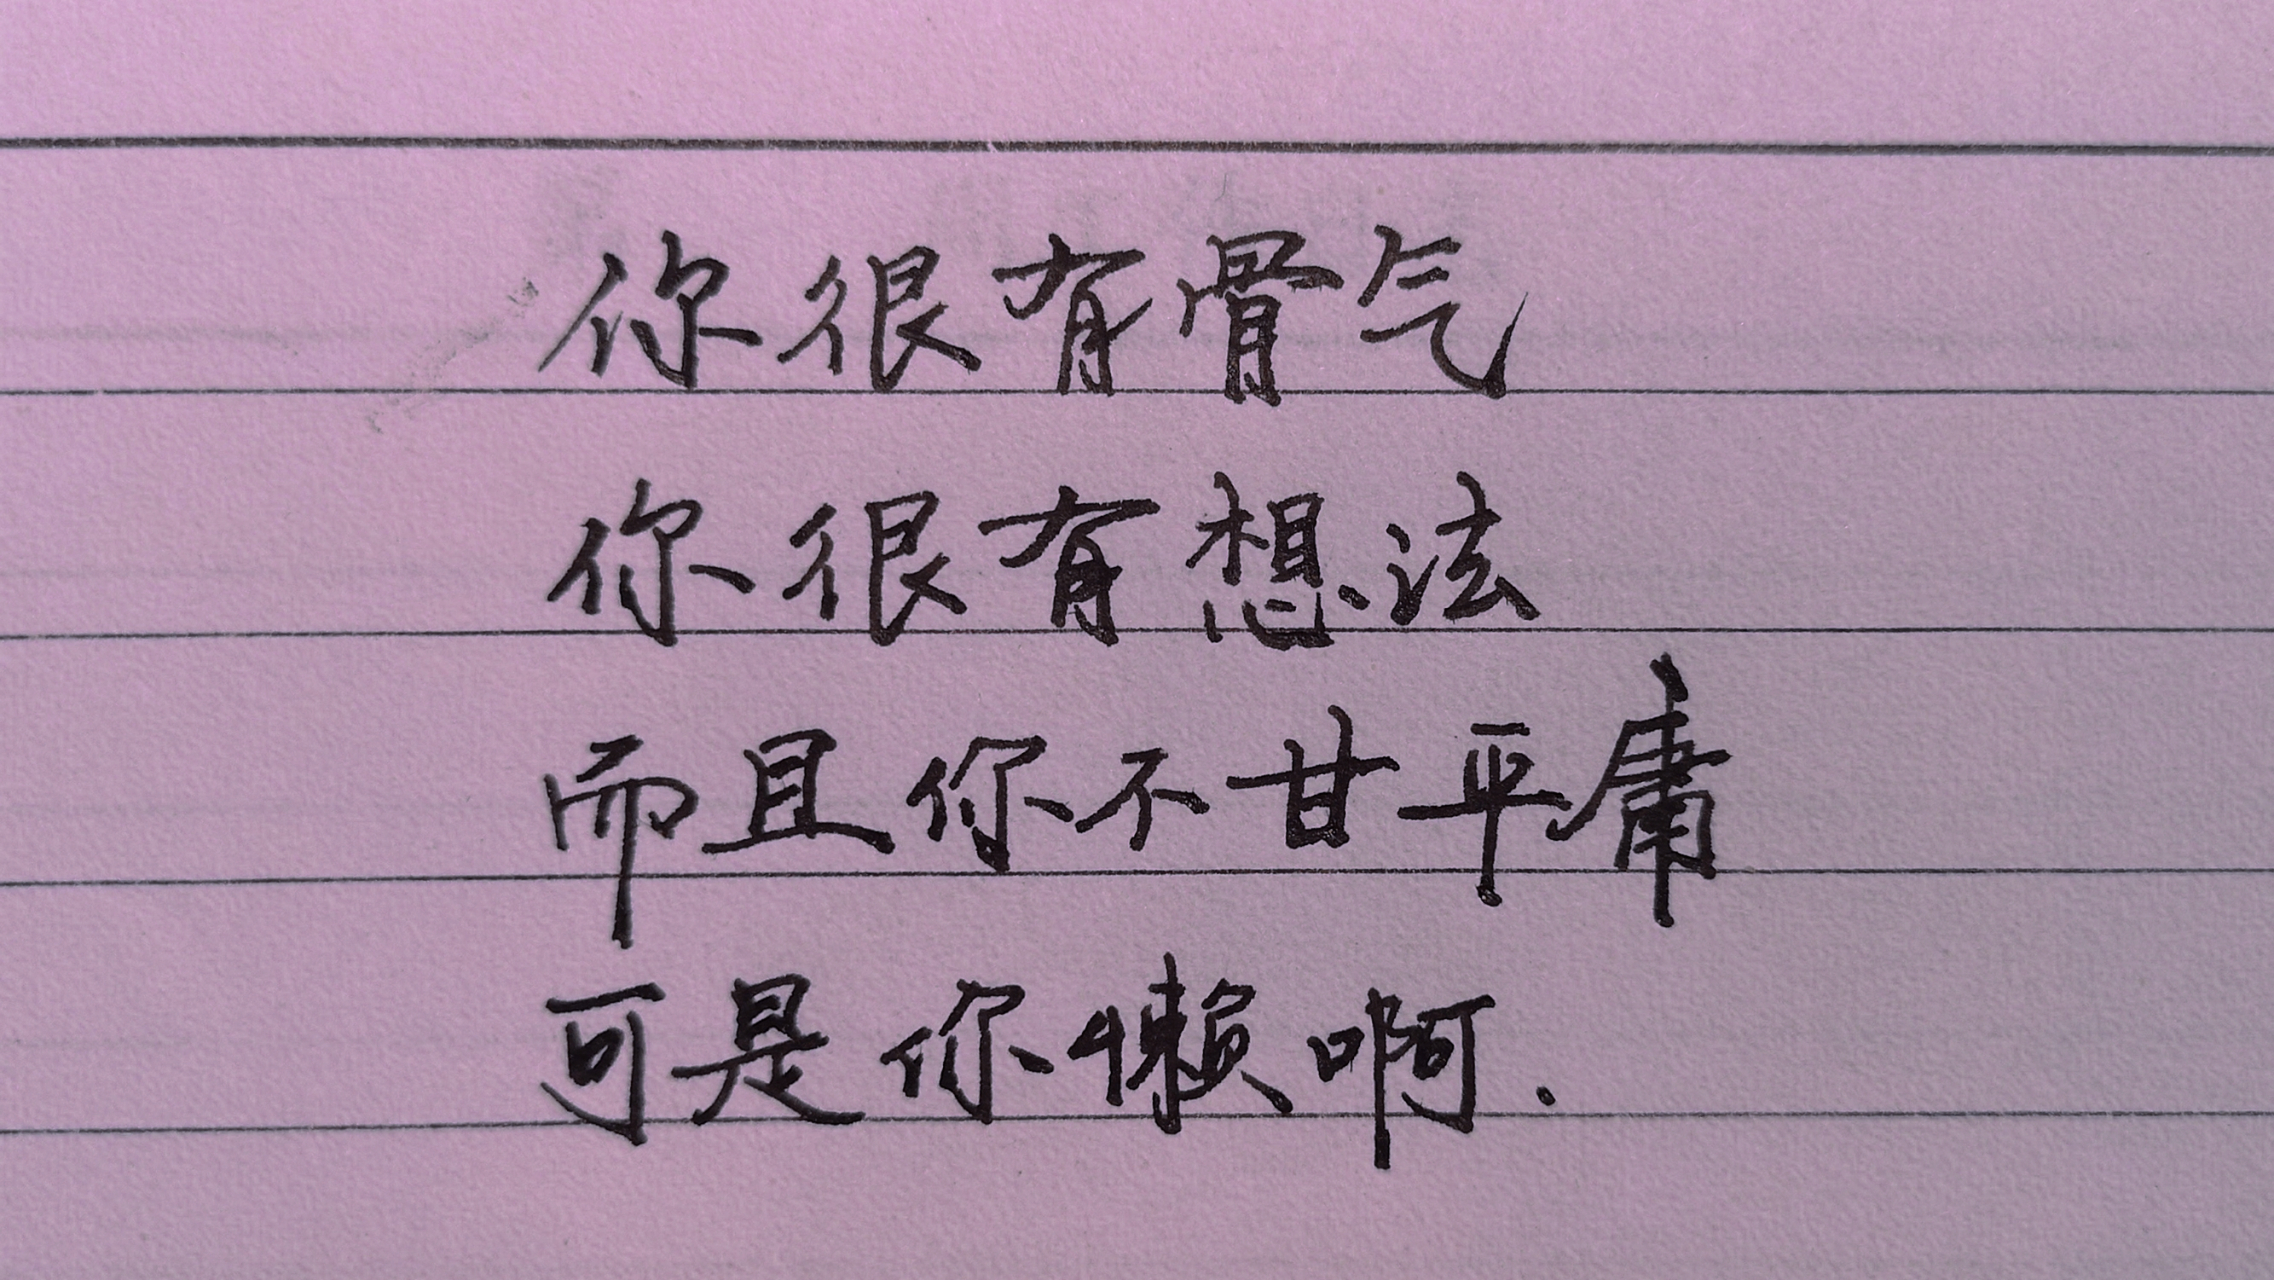 你很有骨气
你很有想法
而且你不甘平庸
可是你懒啊.